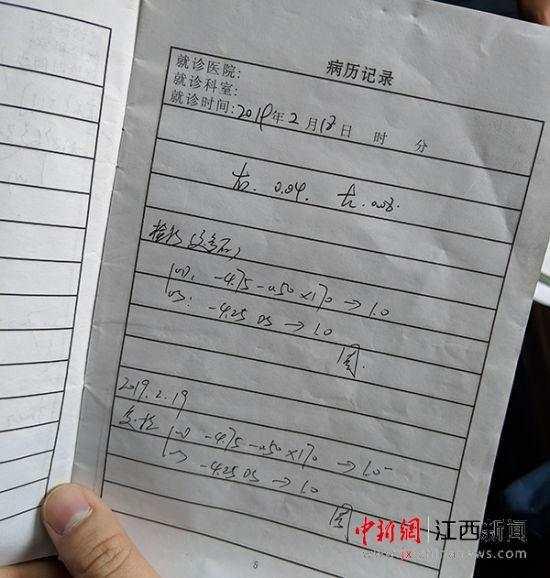 病历记录
就诊医院:
就诊科室:
就诊时间: 2019年 2 月 18 日 时 分
右. 0.04. 左. 0.08.
OD: -4.75 -0.50×170 → 1.0
OS: -4.25 DS → 1.0
2019.2.19
复验 OD -4.75 -0.50×170 → 1.0
OS -4.25 DS → 1.0
中新網 江西新闻
www.jx.chinanews.com